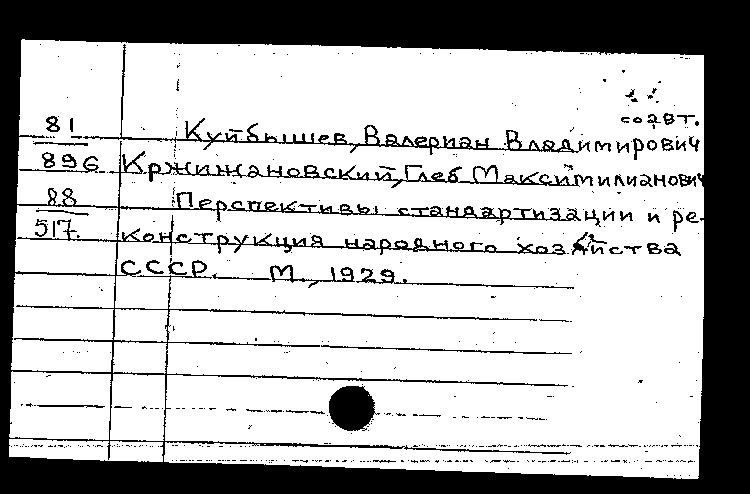 соавт.
81 Куйбышев, Валериан Владимирович
896 Кржижановский, Глеб Максимилианович
88 Перспективы стандартизации и ре-
517. конструкция народного хозяйства
СССР. М., 1929.